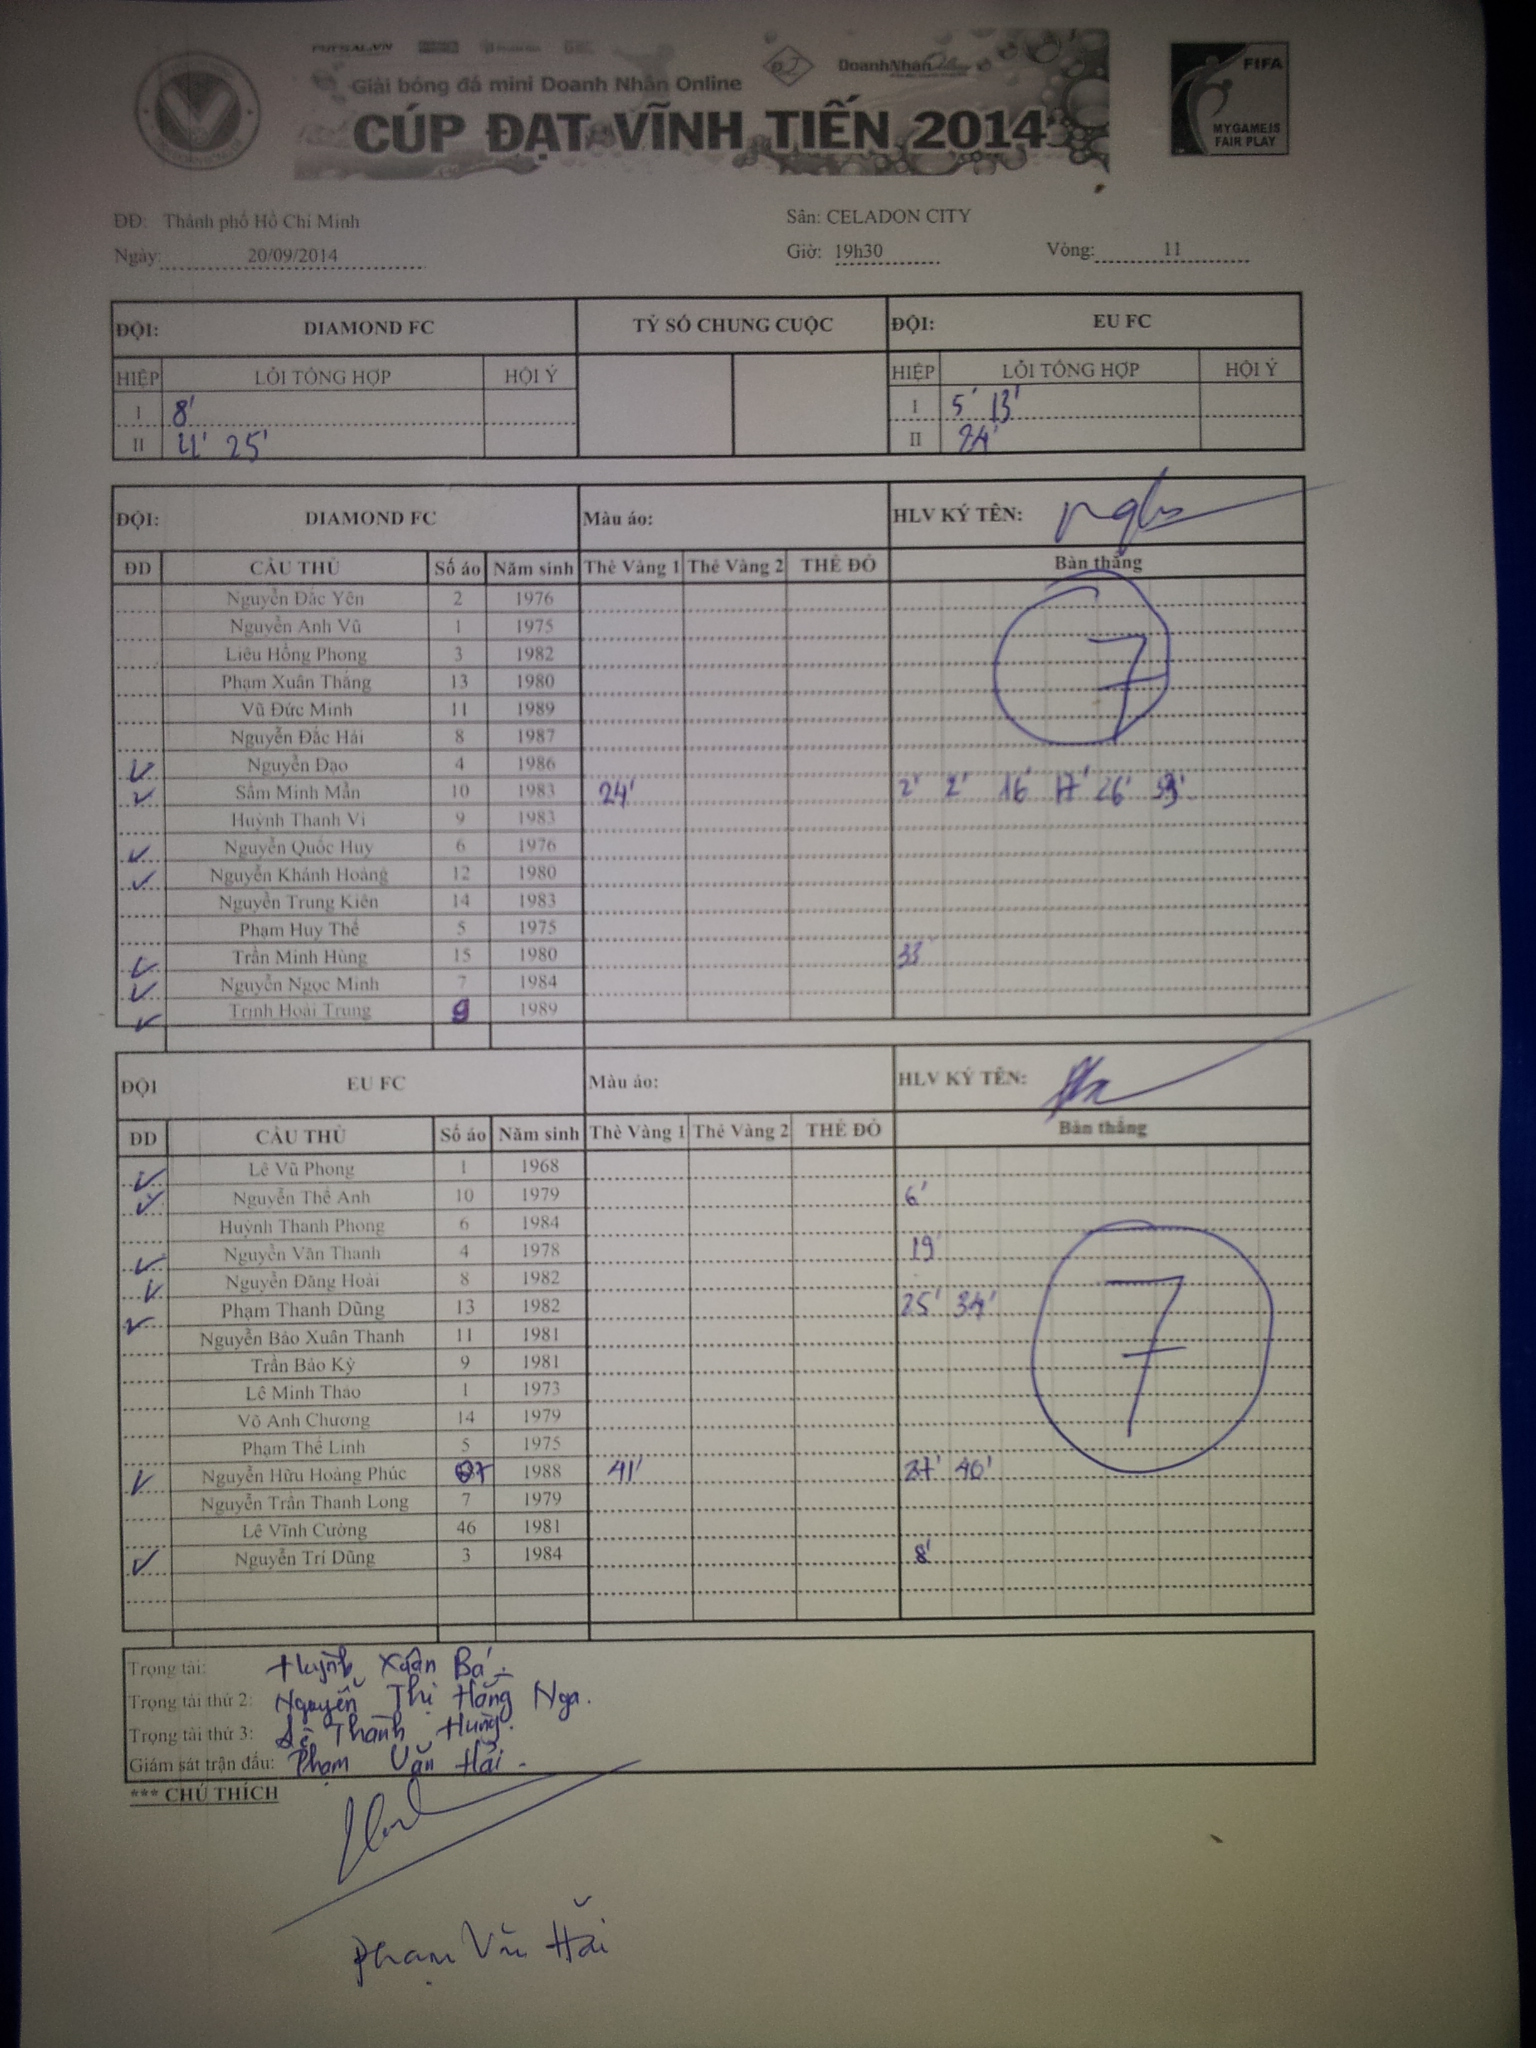 FUTSAL.VN
Giải bóng đá mini Doanh Nhân Online
DoanhNhânOnline
CÚP ĐẠT VĨNH TIẾN 2014
FIFA
MY GAME IS
FAIR PLAY
ĐĐ: Thành phố Hồ Chí Minh
Sân: CELADON CITY
Ngày: 20/09/2014
Giờ: 19h30
Vòng: 11
ĐỘI: DIAMOND FC TỶ SỐ CHUNG CUỘC ĐỘI: EU FC
HIỆP LỖI TỔNG HỢP HỘI Ý HIỆP LỖI TỔNG HỢP HỘI Ý
I 8' I 5' 13'
II 25' II 24'
ĐỘI: DIAMOND FC Màu áo: HLV KÝ TÊN:
ĐD CẦU THỦ Số áo Năm sinh Thẻ Vàng 1 Thẻ Vàng 2 THẺ ĐỎ Bàn thắng
Nguyễn Đắc Yên 2 1976
Nguyễn Anh Vũ 1 1975
Liêu Hồng Phong 3 1982
7
Phạm Xuân Thắng 13 1980
Vũ Đức Minh 11 1989
Nguyễn Đắc Hải 8 1987
Nguyễn Đạo 4 1986
Sầm Minh Mẫn 10 1983 24' 2' 2' 16' 17' 26' 33'
Huỳnh Thanh Vi 9 1983
Nguyễn Quốc Huy 6 1976
Nguyễn Khánh Hoàng 12 1980
Nguyễn Trung Kiên 14 1983
Phạm Huy Thế 5 1975
Trần Minh Hùng 15 1980 33'
Nguyễn Ngọc Minh 7 1984
Trịnh Hoài Trung 9 1989
ĐỘI EU FC Màu áo: HLV KÝ TÊN:
ĐD CẦU THỦ Số áo Năm sinh Thẻ Vàng 1 Thẻ Vàng 2 THẺ ĐỎ Bàn thắng
Lê Vũ Phong 1 1968
Nguyễn Thế Anh 10 1979 6'
Huỳnh Thanh Phong 6 1984
Nguyễn Văn Thanh 4 1978 19'
Nguyễn Đăng Hoài 8 1982
Phạm Thanh Dũng 13 1982 25' 34'
Nguyễn Bảo Xuân Thanh 11 1981
7
Trần Bảo Kỳ 9 1981
Lê Minh Thảo 1 1973
Võ Anh Chương 14 1979
Phạm Thế Linh 5 1975
Nguyễn Hữu Hoàng Phúc 1988 41' 27' 40'
Nguyễn Trần Thanh Long 7 1979
Lê Vĩnh Cường 46 1981
Nguyễn Trí Dũng 3 1984 8'
Trọng tài: Huỳnh Xuân Bá
Trọng tài thứ 2: Nguyễn Thị Hồng Nga.
Trọng tài thứ 3: Lê Thành Hưng.
Giám sát trận đấu: Phạm Văn Hải.
*** CHÚ THÍCH
Phạm Văn Hải